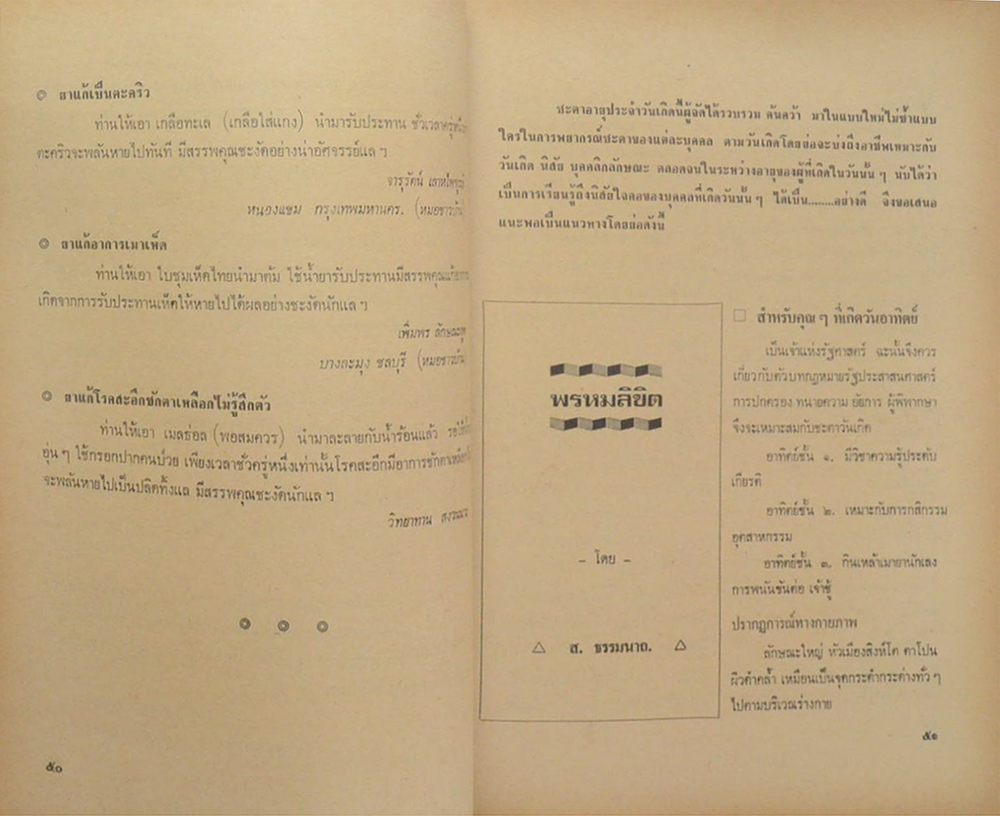 ◎ ยาแก้เป็นตะคริว
ท่านให้เอา เกลือทะเล (เกลือใส่แกง) นำมารับประทาน ชั่วเวลาครู่หนึ่ง
ตะคริวจะพลันหายไปทันที มีสรรพคุณชะงัดอย่างน่าอัศจรรย์แล ฯ
จารุรัตน์
หนองแขม กรุงเทพมหานคร. (หมอชาวบ้าน)
◎ ยาแก้อาการเมาเห็ด
ท่านให้เอา ใบชุมเห็ดไทยนำมาต้ม ใช้น้ำยารับประทานมีสรรพคุณแก้อาการ
เกิดจากการรับประทานเห็ดให้หายไปได้ผลอย่างชะงัดนักแล ฯ
เพิ่มพร
บางละมุง ชลบุรี (หมอชาวบ้าน)
◎ ยาแก้โรคสะอึกชักตาเหลือกไม่รู้สึกตัว
ท่านให้เอา เมลธ่อล (พอสมควร) นำมาละลายกับน้ำร้อนแล้ว
อุ่น ๆ ใช้กรอกปากคนป่วย เพียงเวลาชั่วครู่หนึ่งเท่านั้นโรคสะอึกมีอาการชักตาเหลือก
จะพลันหายไปเป็นปลิดทิ้งแล มีสรรพคุณชะงัดนักแล ฯ
วิทยาทาน
๕๐
ชะตาอายุประจำวันเกิดนี้ผู้จัดได้รวบรวม ค้นคว้า มาในแบบใหม่ไม่ซ้ำแบบ
ใครในการพยากรณ์ชะตาของแต่ละบุคคล ตามวันเกิดโดยย่อจะบ่งถึงอาชีพเหมาะกับ
วันเกิด นิสัย บุคคลิกลักษณะ ตลอดจนในระหว่างอายุของผู้ที่เกิดในวันนั้น ๆ นับได้ว่า
เป็นการเรียนรู้ถึงนิสัยใจคอของบุคคลที่เกิดวันนั้น ๆ ได้เป็น........อย่างดี จึงขอเสนอ
แนะพอเป็นแนวทางโดยย่อดังนี้
พรหมลิขิต
- โดย -
△ ส. ธรรมนาถ. △
□ สำหรับคุณ ๆ ที่เกิดวันอาทิตย์
เป็นเจ้าแห่งรัฐศาสตร์ ฉะนั้นจึงควร
เกี่ยวกับตัวบทกฎหมายรัฐประสาสนศาสตร์
การปกครอง ทนายความ อัยการ ผู้พิพากษา
จึงจะเหมาะสมกับชะตาวันเกิด
อาทิตย์ชั้น ๑. มีวิชาความรู้ประดับ
เกียรติ
อาทิตย์ชั้น ๒. เหมาะกับการกสิกรรม
อุตสาหกรรม
อาทิตย์ชั้น ๓. กินเหล้าเมายานักเลง
การพนันขันต่อ เจ้าชู้
ปรากฏการณ์ทางกายภาพ
ลักษณะใหญ่ หัวเมืองสิงห์โต ตาโปน
ผิวดำคล้ำ เหมือนเป็นจุดกระดำกระด่างทั่ว ๆ
ไปตามบริเวณร่างกาย
๕๑